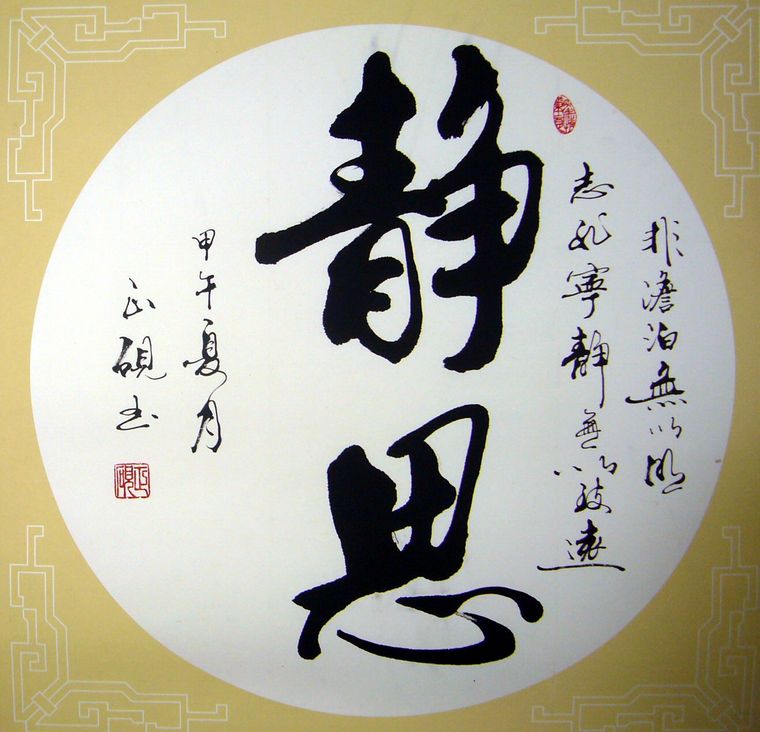 非澹泊無以明
志非寧静無以致遠
静思
甲午夏月
正硯书